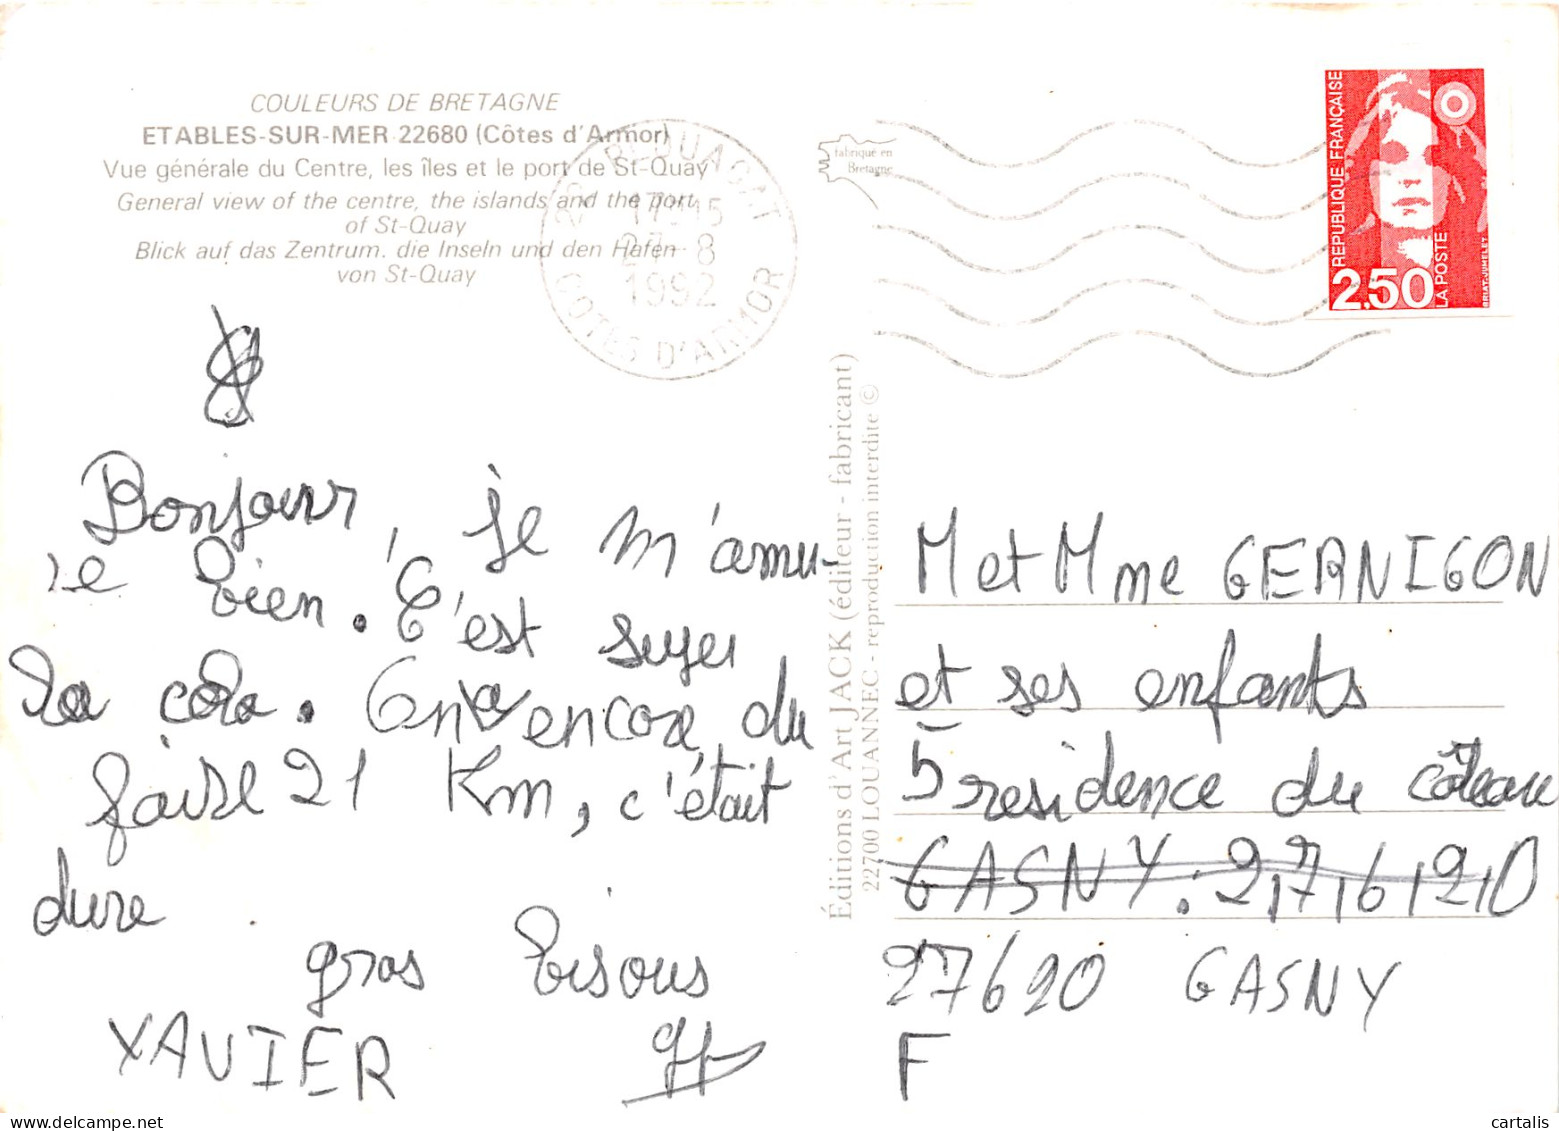 COULEURS DE BRETAGNE
ETABLES-SUR-MER 22680 (Côtes d'Armor)
Vue générale du Centre, les îles et le port de St-Quay
General view of the centre, the islands and the port
of St-Quay
Blick auf das Zentrum. die Inseln und den Hafen
von St-Quay
22 PLOUAGAT
17H15
27-8
1992
COTES D'ARMOR
fabriqué en
Bretagne
REPUBLIQUE FRANÇAISE
2,50
LA POSTE
BRIAT-JUMELET
Bonjour, je m'amu-
se bien. C'est super
la colo. On a encore du
faire 21 Km, c'était
dure.
gros bisous
XAVIER
Éditions d'Art JACK (éditeur - fabricant)
22700 LOUANNEC - reproduction interdite ©
M et Mme GERNIGON
et ses enfants
5 residence du côteau
GASNY. 27620
27620 GASNY
F
cartalis
www.delcampe.net